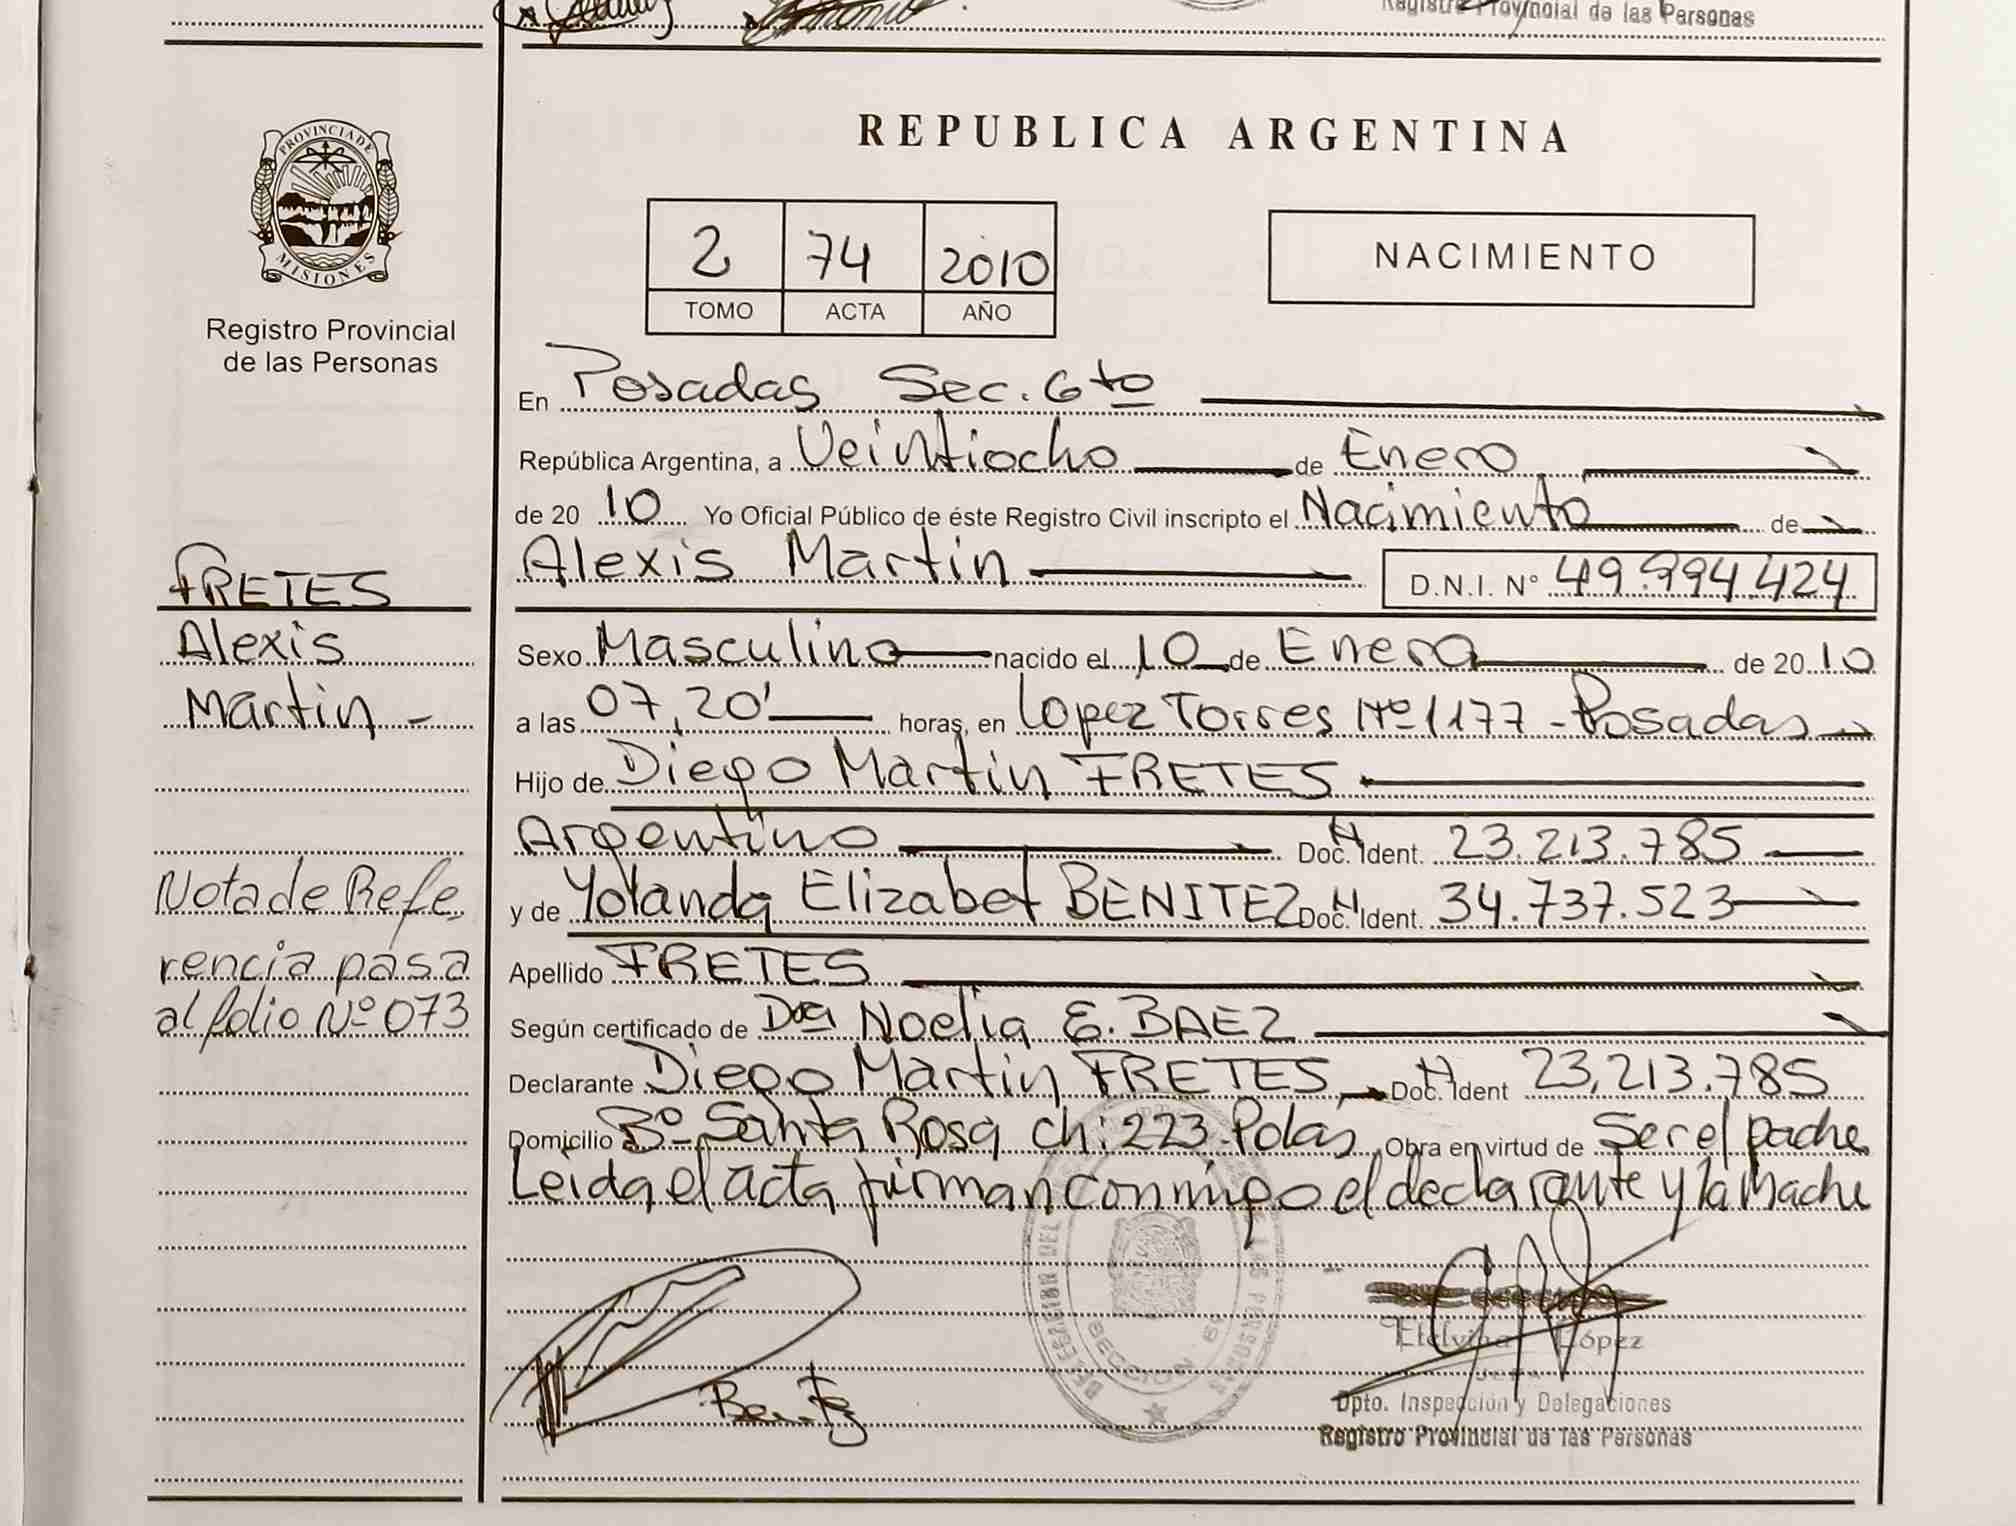 Registro Provincial de las Personas
REPUBLICA ARGENTINA
PROVINCIA DE
MISIONES
Registro Provincial
de las Personas
2 74 2010
TOMO ACTA AÑO
NACIMIENTO
En Posadas Sec. 6to
República Argentina, a Veintiocho de Enero
de 20 10 Yo Oficial Público de éste Registro Civil inscripto el Nacimiento de
Alexis Martin D.N.I. Nº 49.994.424
Sexo Masculino nacido el 10 de Enero de 20 10
a las 07,20' horas, en Lopez Torres Nº 1177 - Posadas
Hijo de Diego Martin FRETES
Argentino Doc. Ident. 23.213.785
y de Yolanda Elizabet BENITEZ Doc. Ident. 34.737.523
Apellido FRETES
Según certificado de Dra Noelia E. BAEZ
Declarante Diego Martin FRETES Doc. Ident 23,213.785
Domicilio Bº Santa Rosa ch: 223-Pdas Obra en virtud de Ser el padre
Leida el acta firman conmigo el declarante y la Madre
FRETES
Alexis
Martin -
Nota de Refe-
rencia pasa
al folio Nº 073
Benitez
Etelvina López
JEFA
Dpto. Inspección y Delegaciones
Registro Provincial de las Personas
SECCION